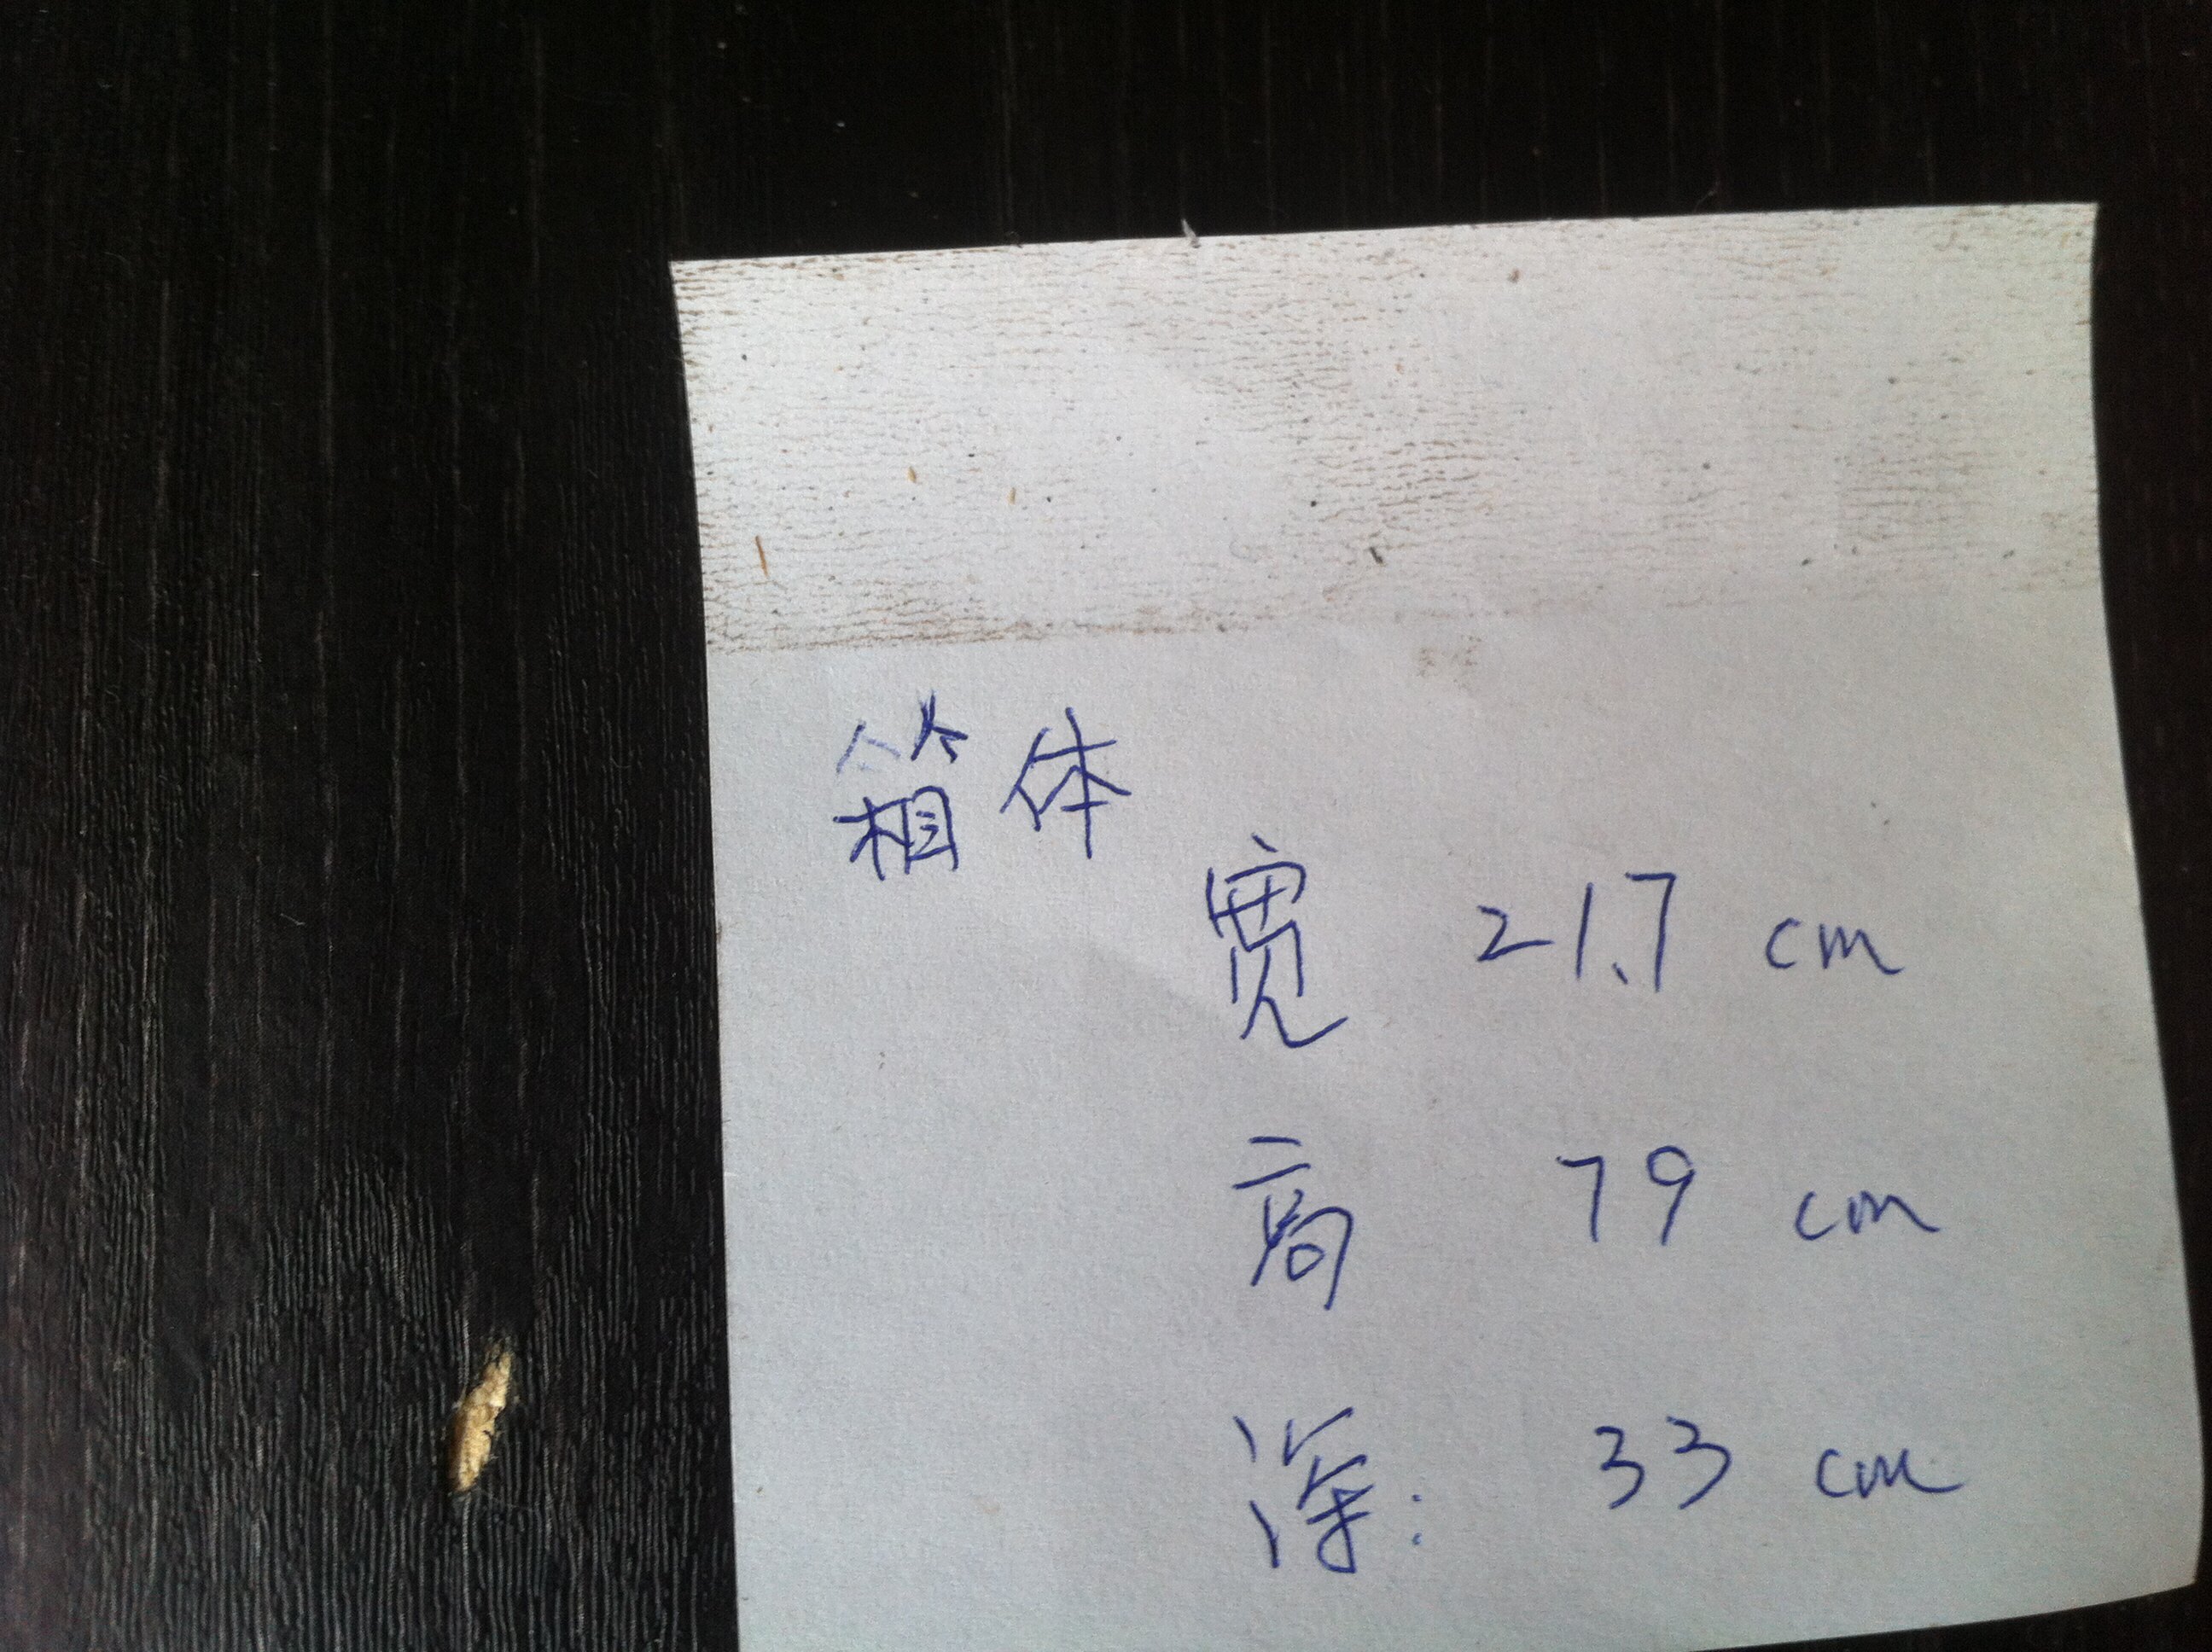 箱体
宽 21.7 cm
高 79 cm
深: 33 cm